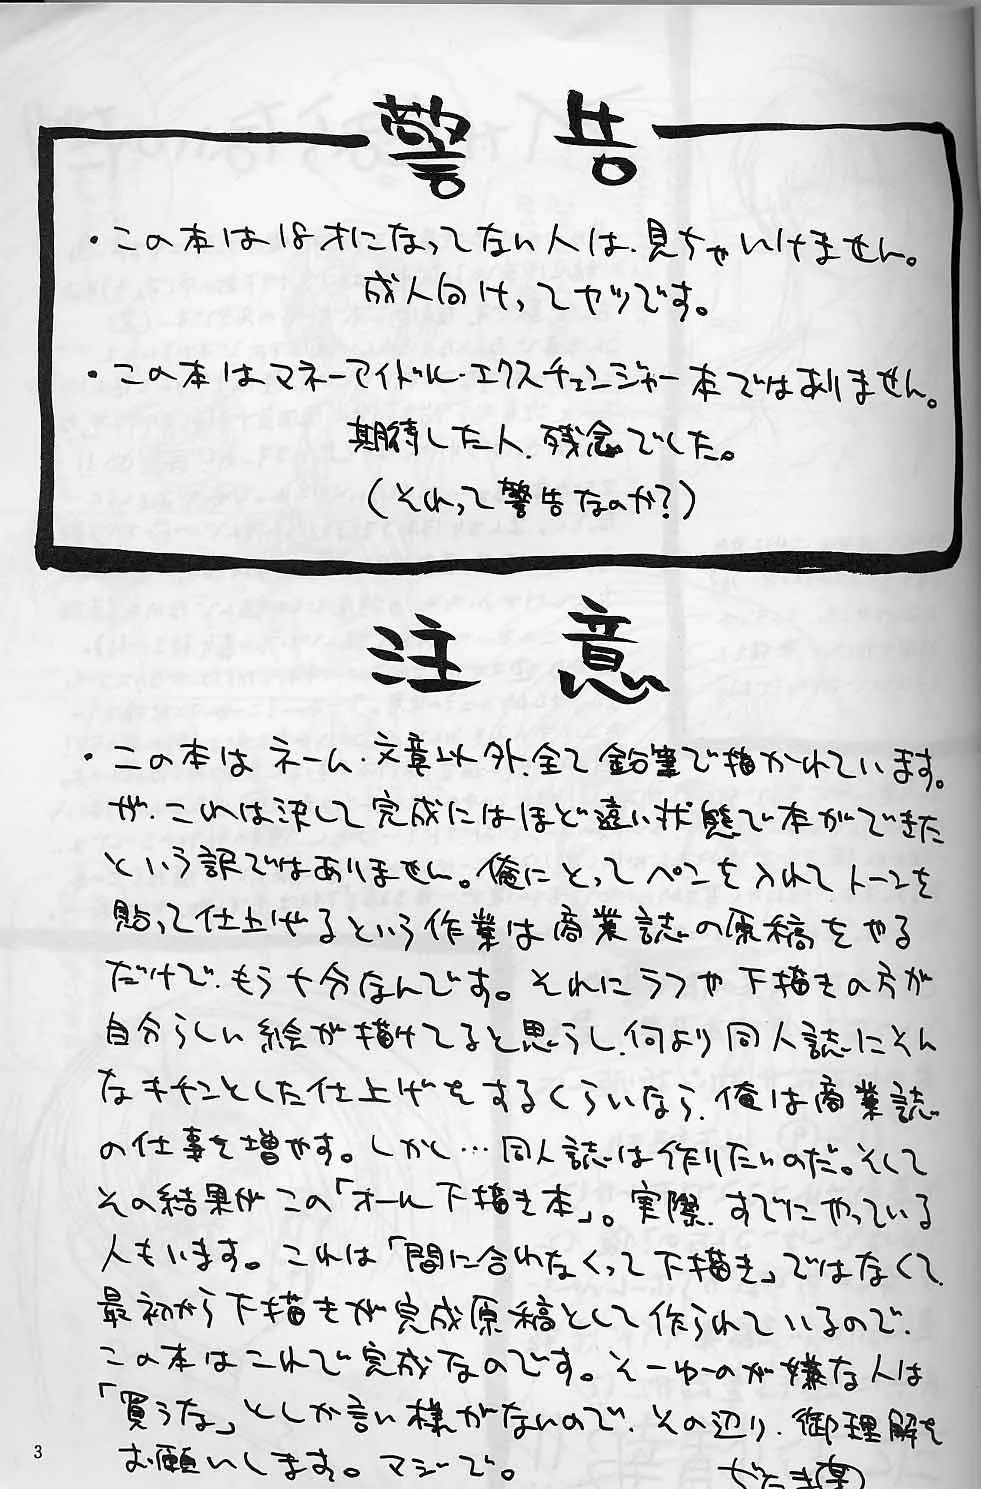 警告
・この本は18才になってない人は、見ちゃいけません。
成人向けってヤツです。
・この本はマネーアイドル・エクスチェンジャー本ではありません。
期待した人、残念でした。
(それって警告なのか?)
注意
・この本はネーム・文章以外、全て鉛筆で描かれています。
が、これは決して完成にはほど遠い状態で本ができた
という訳ではありません。俺にとってペンを入れてトーンを
貼って仕上げるという作業は商業誌の原稿をやる
だけで、もう十分なんです。それにラフや下描きの方が
自分らしい絵が描けてると思うし、何より同人誌にそん
なキチンとした仕上げをするくらいなら、俺は商業誌
の仕事を増やす。しかし…同人誌は作りたいのだ。そして
その結果がこの「オール下描き本」。実際、すでにやっている
人もいます。これは「間に合わなくって下描き」ではなくて、
最初から下描きが完成原稿として作られているので、
この本はこれで完成なのです。そーゆのが嫌な人は
「買うな」としか言い様がないので、その辺り、御理解を
お願いします。マジで。
3